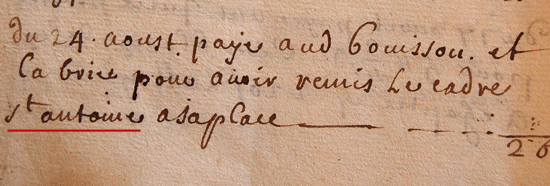 du 24. aoust paye aud bouissou. et
la brie pour avoir remis le cadre
st antoine asaplace
26